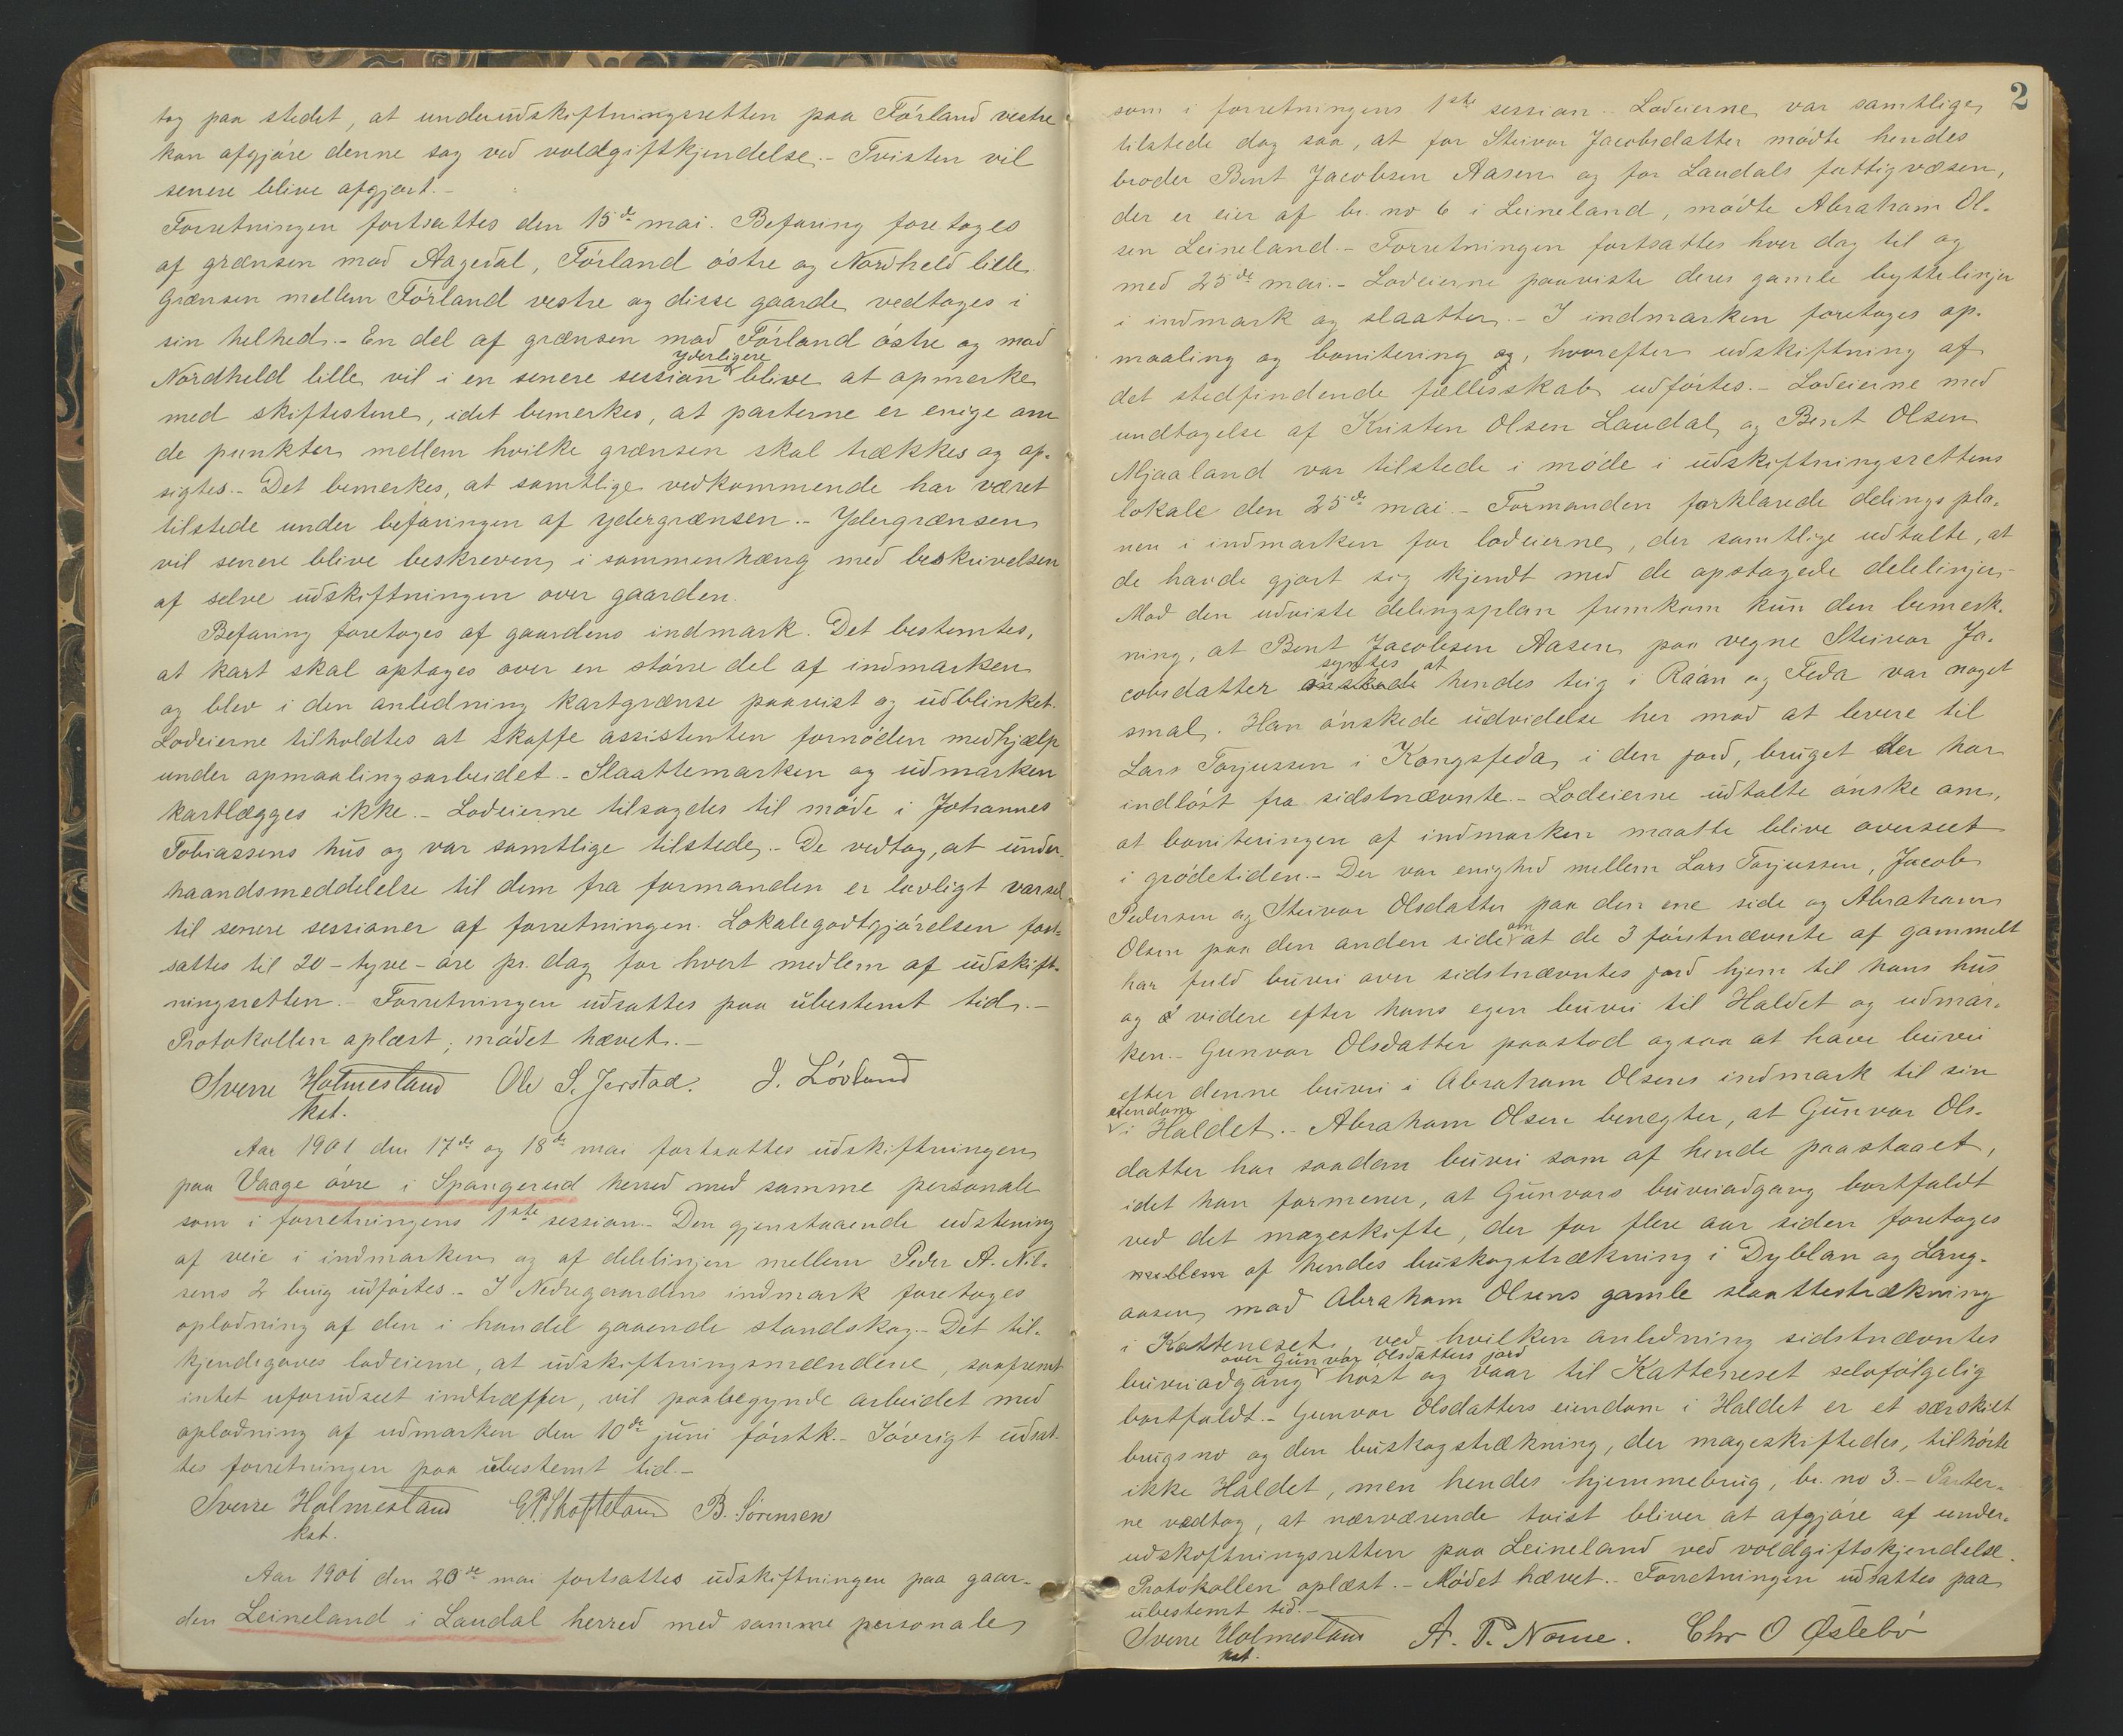 tog paa stedet, at underudskiftningsretten paa Förland vestre
kan afgjöre denne sag ved voldgiftskjendelse. - Tvisten vil
senere blive afgjort. -
Forretningen fortsattes den 15de mai. Befaring foretoges
af grænsen mod Aagedal, Förland östre og Nordheld lille.
Grænsen mellem Förland vestre og disse gaarde vedtoges i
sin helhed. - En del af grænsen mod Förland östre og mod
yderligere
Nordheld lille vil i en senere session blive at opmerke
med skiftestene, idet bemerkes, at parterne er enige om
de punkter mellem hvilke grænsen skal trækkes og op-
sigtes. - Det bemerkes, at samtlige vedkommende har været
tilstede under befaringen af ydergrænsen. - Ydergrænsen
vil senere blive beskreven i sammenhæng med beskrivelsen
af selve udskiftningen over gaarden.
Befaring foretoges af gaardens indmark. Det bestemtes,
at kart skal optages over en större del af indmarken
og blev i den anledning kartgrænse paavist og udblinket.
Lodeierne tilholdtes at skaffe assistenten fornöden medhjælp
under opmaalingsarbeidet. - Slaattemarken og udmarken
kartlægges ikke. - Lodeierne tilsagdes til möde i Johannes
Tobiassens hus og var samtlige tilstede. - De vedtog, at under-
haandsmeddelelse til dem fra formanden er lovligt varsel
til senere sessioner af forretningen. Lokalegodtgjörelsen fast-
sattes til 20 - tyve - öre pr. dag for hvert medlem af udskift-
ningsretten. - Forretningen udsattes paa ubestemt tid. -
Protokollen oplæst; mödet hævet. -
Sverre Holmesland Ole S. Jerstad. J. Lövland
kst.
Aar 1901 den 17de og 18de mai fortsattes udskiftningen
paa Vaage övre i Spangereid herred med samme personale
som i forretningens 1ste session. - Den gjenstaaende udstening
af veie i indmarken og af delelinjen mellem Peder A. Nil-
sens 2 brug udförtes. - I Nedregaardens indmark foretoges
oplodning af den i handel gaaende standskog. - Det til-
kjendegaves lodeierne, at udskiftningsmændene, saafremt
intet uforudseet indtræffer, vil paabegynde arbeidet med
oplodning af udmarken den 10de juni förstk. - Iövrigt udsat-
tes forretningen paa ubestemt tid. -
Sverre Holmesland B. Sörensen
kst.
Aar 1901 den 20de mai fortsattes udskiftningen paa gaar-
den Leineland i Laudal herred med samme personale
2
som i forretningens 1ste session. - Lodeierne var samtlige
tilstede dog saa, at for Steivor Jacobsdatter mödte hendes
broder Bent Jacobsen Aasen og for Laudals fattigvæsen,
der er eier af br. no 6 i Leineland, mödte Abraham Ol-
sen Leineland. - Forretningen fortsattes hver dag til og
med 25de mai. - Lodeierne paaviste deres gamle byttelinjer
i indmark og slaatter. - I indmarken foretoges op-
maaling og bonitering og, hvorefter udskiftning af
det stedfindende fællesskab udförtes. - Lodeierne med
undtagelse af Kristen Olsen Laudal og Bent Olsen
Mjaaland var tilstede i möde i udskiftningsrettens
lokale den 25de mai. - Formanden forklarede delingspla-
nen i indmarken for lodeierne, der samtlige udtalte, at
de havde gjort sig kjendt med de opstagede delelinjer. -
Mod den udviste delingsplan fremkom kun den bemerk-
ning, at Bent Jacobsen Aasen paa vegne Steivor Ja-
syntes at
cobsdatter önskede hendes teig i Råån og Feda var noget
smal. Han önskede udvidelse her mod at levere til
Lars Torjussen i Kongsfeda i den jord, bruget der har
indlöst fra sidstnævnte. - Lodeierne udtalte önske om,
at boniteringen af indmarken maatte blive overseet
i grödetiden. - Der var enighed mellem Lars Torjussen, Jacob
Pedersen og Steivor Olsdatter paa den ene side og Abraham
om
Olsen paa den anden side at de 3 förstnævnte af gammelt
har fuld buvei over sidstnævntes jord hjem til hans hus
og videre efter hans egen buvei til Haldet og udmar-
ken. - Gunvor Olsdatter paastod ogsaa at have buvei
efter denne buvei i Abraham Olsens indmark til sin
eiendom
i Haldet. - Abraham Olsen benegter, at Gunvor Ols-
datter har saadan buvei som af hende paastaaet,
idet han formener, at Gunvors buveiadgang bortfaldt
ved det mageskifte, der for flere aar siden foretoges
mellem af hendes buskogstrækning i Dyblan og Lang-
aasen mod Abraham Olsens gamle slaattestrækning
i Katteneset, ved hvilken anledning sidstnævntes
over Gunvor Olsdatters jord
buveiadgang höst og vaar til Katteneset selvfölgelig
bortfaldt. - Gunvor Olsdatters eiendom i Haldet er et særskilt
brugsno og den buskogstrækning, der mageskiftedes, tilhörte
ikke Haldet, men hendes hjemmebrug, br. no 3. - Parter-
ne vedtog, at nærværende tvist bliver at afgjöre af under-
udskiftningsretten paa Leineland ved voldgiftskjendelse.
Protokollen oplæst. - Mödet hævet. - Forretningen udsattes paa
ubestemt tid. -
Sverre Holmesland A. P. Nome. Chr O Østebö
kst.